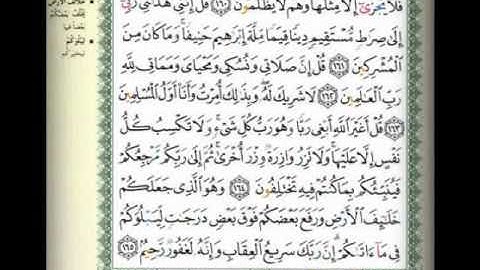 فَلَا يُجْزَىٰٓ إِلَّا مِثْلَهَا وَهُمْ لَا يُظْلَمُونَ ﴿١٦٠﴾ قُلْ إِنَّنِى هَدَىٰنِى رَبِّىٓ
إِلَىٰ صِرَٰطٍ مُّسْتَقِيمٍ دِينًا قِيَمًا مِّلَّةَ إِبْرَٰهِيمَ حَنِيفًا ۚ وَمَا كَانَ مِنَ
ٱلْمُشْرِكِينَ ﴿١٦١﴾ قُلْ إِنَّ صَلَاتِى وَنُسُكِى وَمَحْيَاىَ وَمَمَاتِى لِلَّهِ
رَبِّ ٱلْعَٰلَمِينَ ﴿١٦٢﴾ لَا شَرِيكَ لَهُۥ ۖ وَبِذَٰلِكَ أُمِرْتُ وَأَنَا۠ أَوَّلُ ٱلْمُسْلِمِينَ
﴿١٦٣﴾ قُلْ أَغَيْرَ ٱللَّهِ أَبْغِى رَبًّا وَهُوَ رَبُّ كُلِّ شَىْءٍ ۚ وَلَا تَكْسِبُ كُلُّ
نَفْسٍ إِلَّا عَلَيْهَا ۚ وَلَا تَزِرُ وَازِرَةٌ وِزْرَ أُخْرَىٰ ۚ ثُمَّ إِلَىٰ رَبِّكُم مَّرْجِعُكُمْ
فَيُنَبِّئُكُم بِمَا كُنتُمْ فِيهِ تَخْتَلِفُونَ ﴿١٦٤﴾ وَهُوَ ٱلَّذِى جَعَلَكُمْ
خَلَٰٓئِفَ ٱلْأَرْضِ وَرَفَعَ بَعْضَكُمْ فَوْقَ بَعْضٍ دَرَجَٰتٍ لِّيَبْلُوَكُمْ
فِى مَآ ءَاتَىٰكُمْ ۗ إِنَّ رَبَّكَ سَرِيعُ ٱلْعِقَابِ وَإِنَّهُۥ لَغَفُورٌ رَّحِيمٌۢ ﴿١٦٥﴾